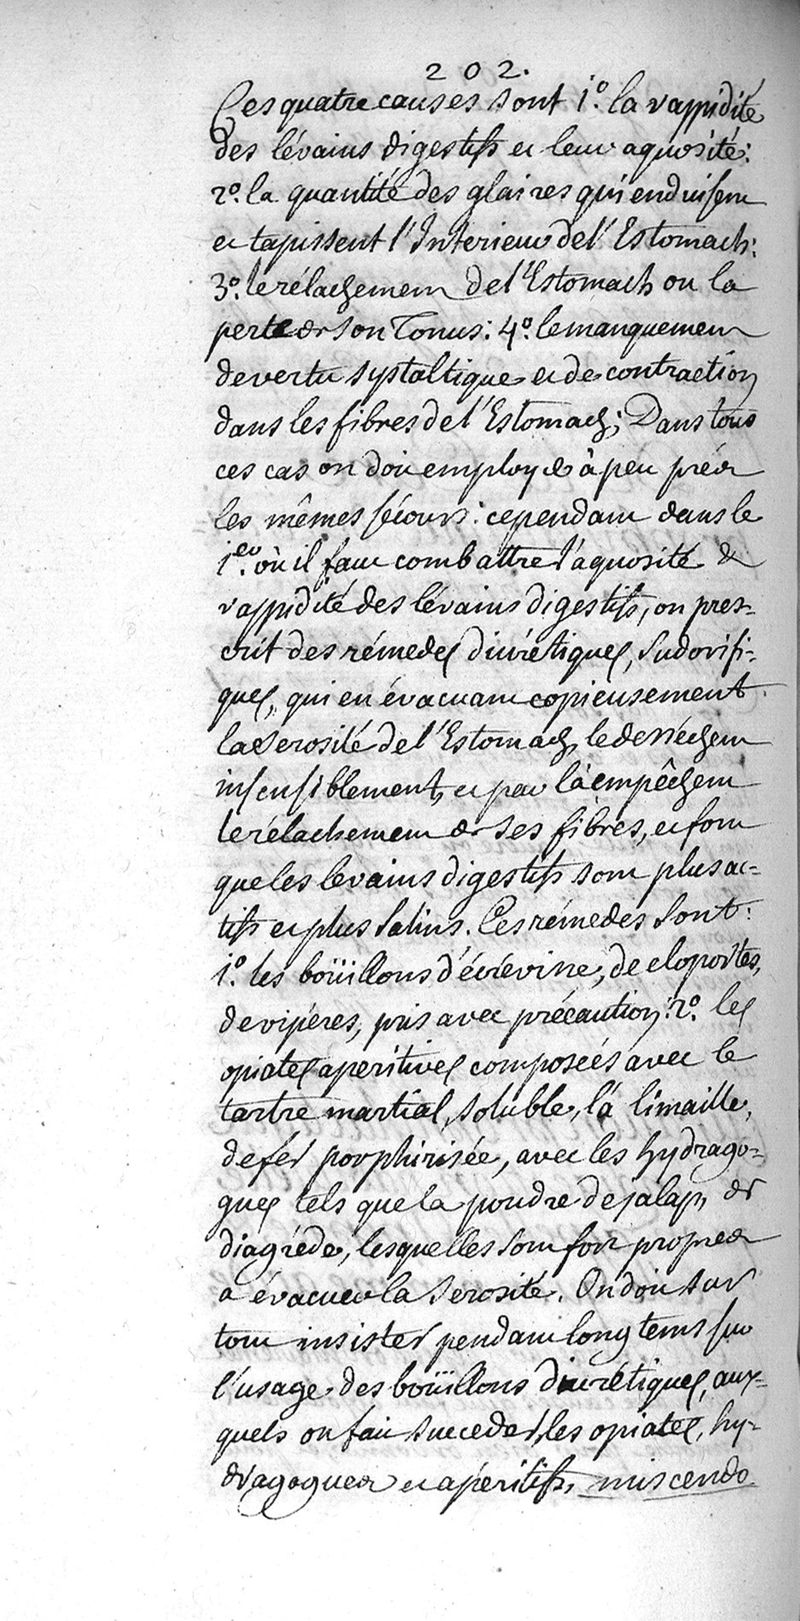 202.
Ces quatre causes sont 1.º la vappidité
des lévains digestifs et leur aquosité:
2º. la quantité des glaires qui enduisent
et tapissent l'Interieur de l'Estomach:
3º. le rélachement de l'Estomach ou la
perte de son Tonus: 4º. le manquement
de vertu systaltique et de contraction
dans les fibres de l'Estomach; Dans tous
ces cas on doit employer à peu prés
les mêmes sécours: cependant dans le
1.er où il faut combattre l'aquosité &
vappidité des lévains digestifs, on pres-
crit des rémedes diurétiques, sudorifi-
ques, qui en évacuant copieusement
la serosité de l'Estomach, le dessèchent
insensiblement, et par là empêchent
le rélachement de ses fibres, et font
que les levains digestifs sont plus ac-
tifs et plus salins. Ces rémedes sont:
1.º les boüillons d'écrevine, de cloportes,
de viperes, pris avec précaution: 2º. les
opiates aperitives composées avec le
tartre martial, soluble, la limaille,
de fer porphirisée, avec les hydrago-
gues tels que la poudre de jalap, de
diagréde, lesquelles sont fort propres
a évacuer la serosité. On doit sur
tout insister pendant long tems sur
l'usage des boüillons diurétiques, aux-
quels on fait succeder les opiates, hy-
dragogues et apéritifs, miscendo